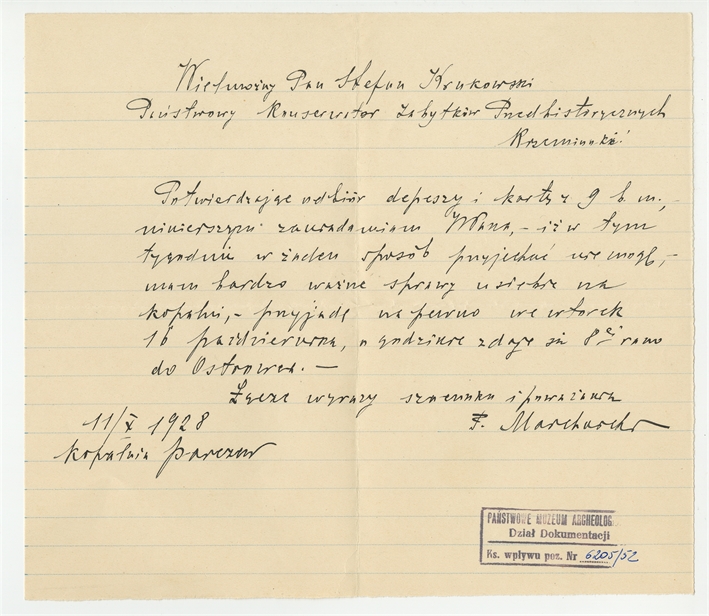 Wielmożny Pan Stefan Krukowski
Państwowy Konserwator Zabytków Przedhistorycznych
Krzemionki!
Potwierdzając odbiór depeszy i karty z 9 b.m.,-
niniejszym zawiadamiam WPana,- iż w tym
tygodniu w żaden sposób przyjechać nie mogę,-
mam bardzo ważne sprawy u siebie na
kopalni,- przyjadę na pewno we wtorek
16 października, o godzinie zdaje się 8ej rano
do Ostrowca.-
Łączę wyrazy szacunku i poważania
11/X 1928
kopalnia
PAŃSTWOWE MUZEUM ARCHEOLOGI
Dział Dokumentacji
Ks. wpływu poz. Nr 6205/52